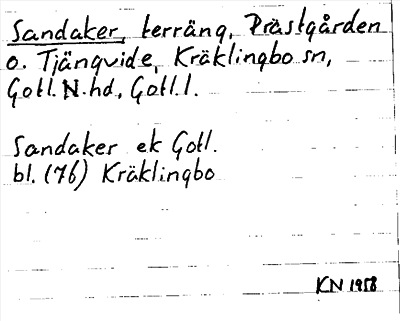 Sandaker, terräng, Prästgården
o. Tjängvide, Kräklingbo sn,
Gotl. N. hd, Gotl. l.
Sandaker ek Gotl.
bl. (76) Kräklingbo
KN 1958